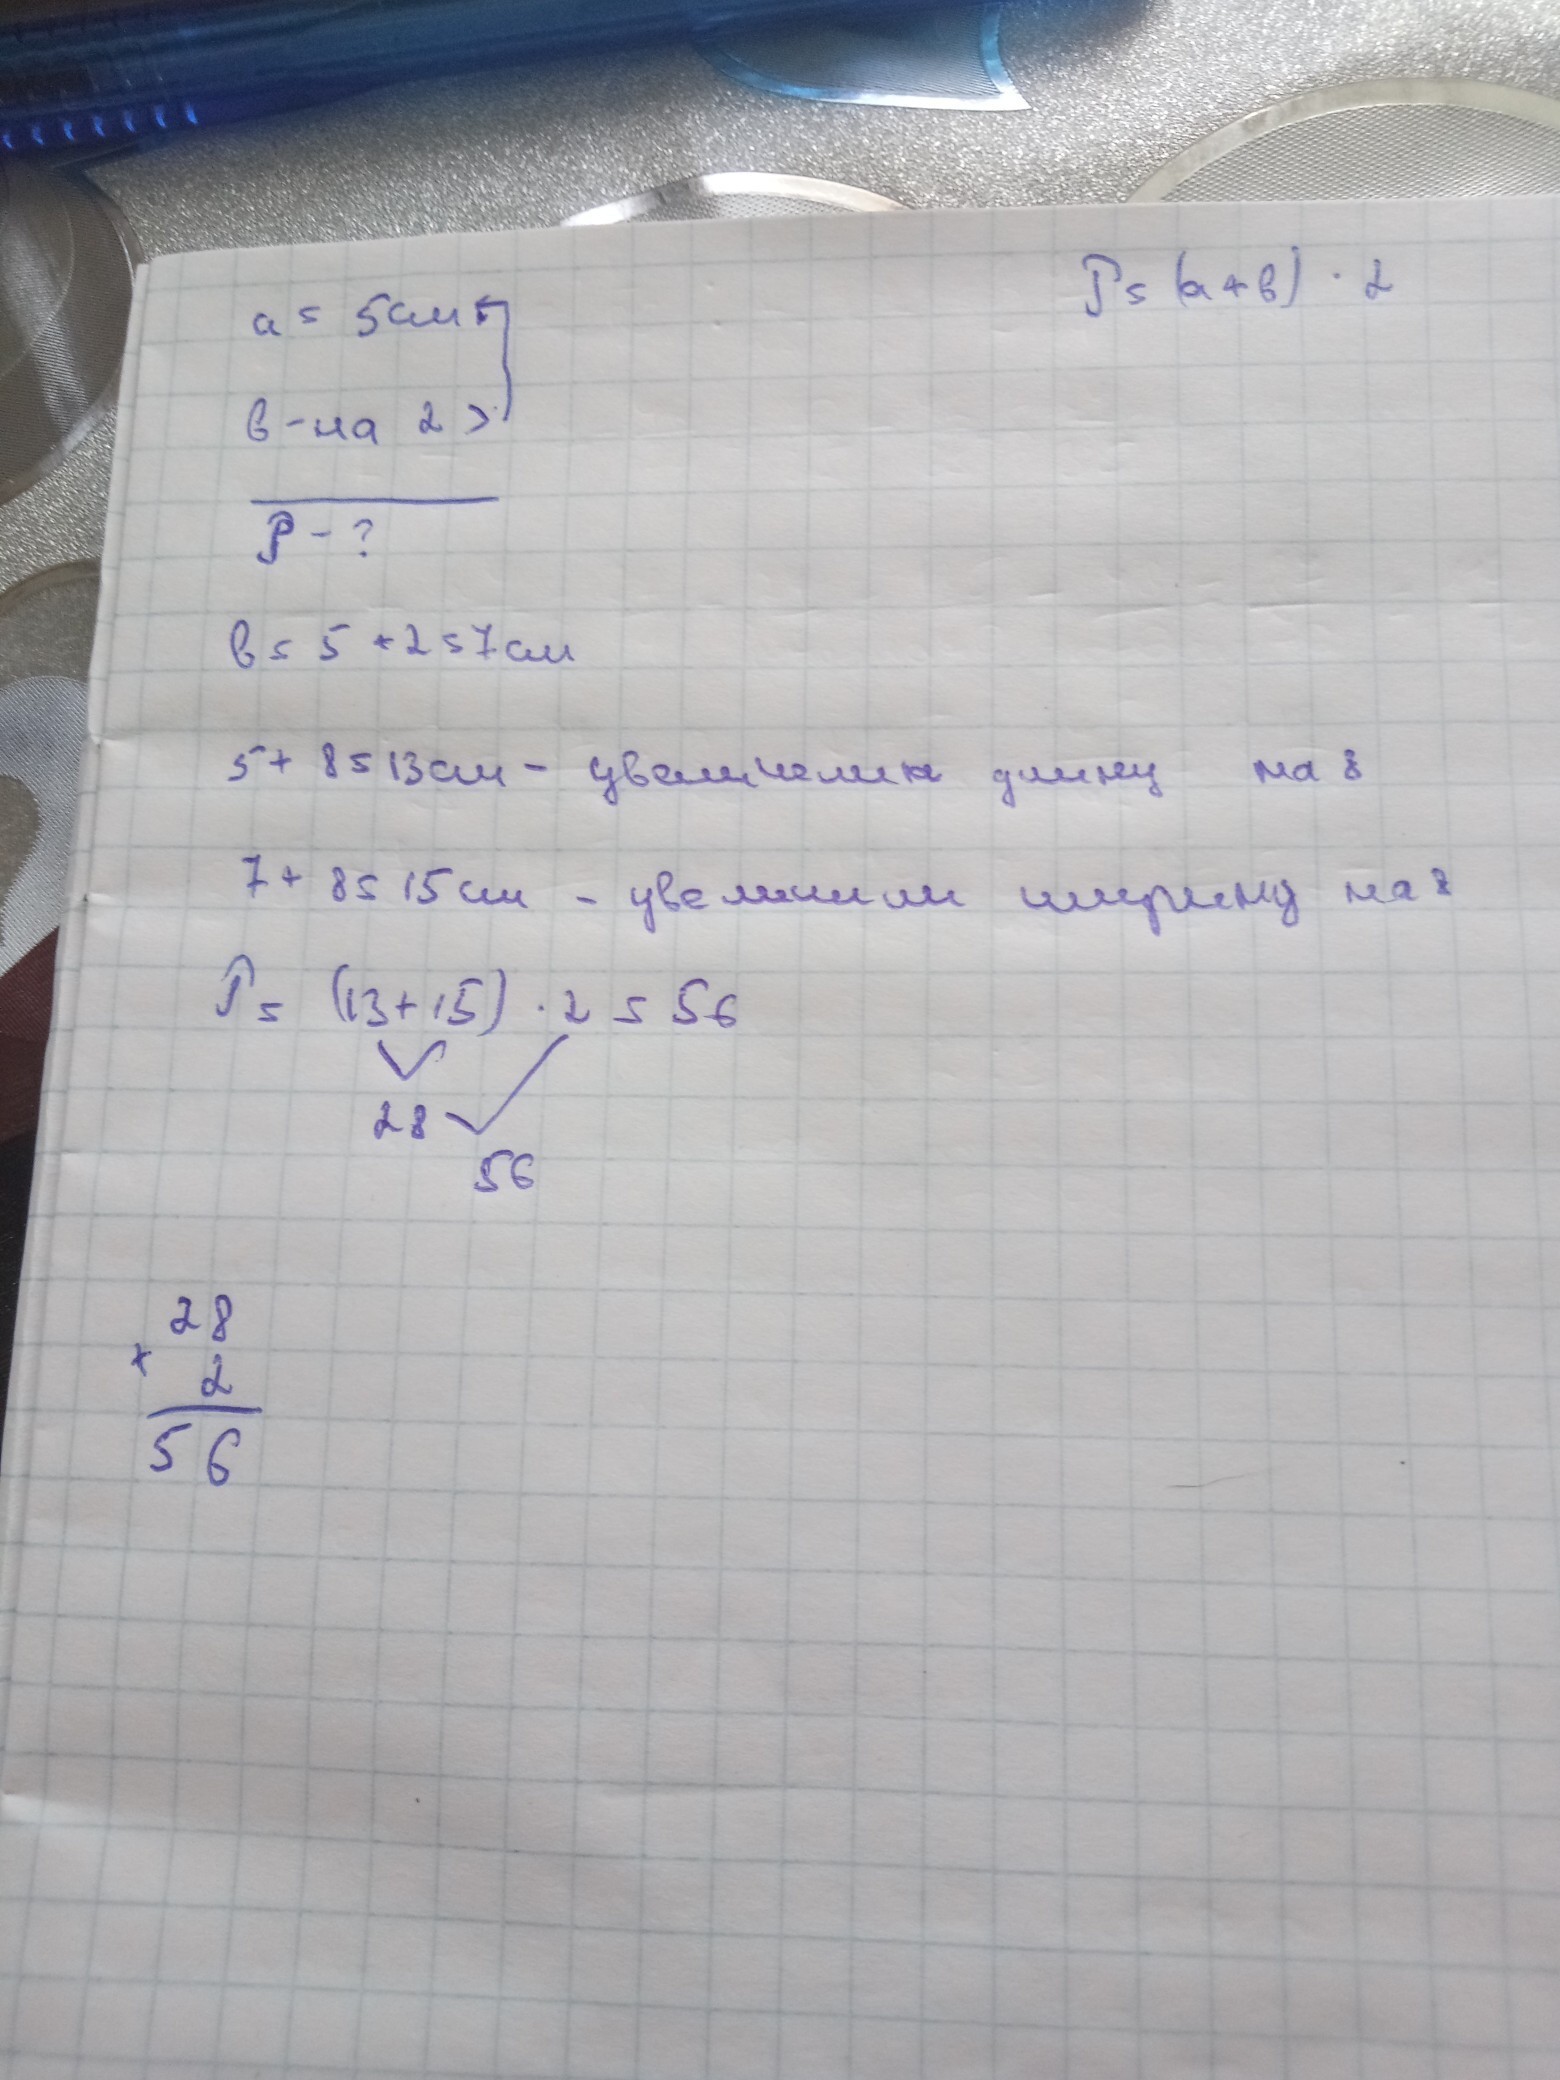 a = 5см
P = (a + в) · 2
в - на 2 >
P - ?
в = 5 + 2 = 7см
5 + 8 = 13см - увеличели длину на 8
7 + 8 = 15см - увеличили ширину на 8
P = (13 + 15) · 2 = 56
28
56
28
× 2
56